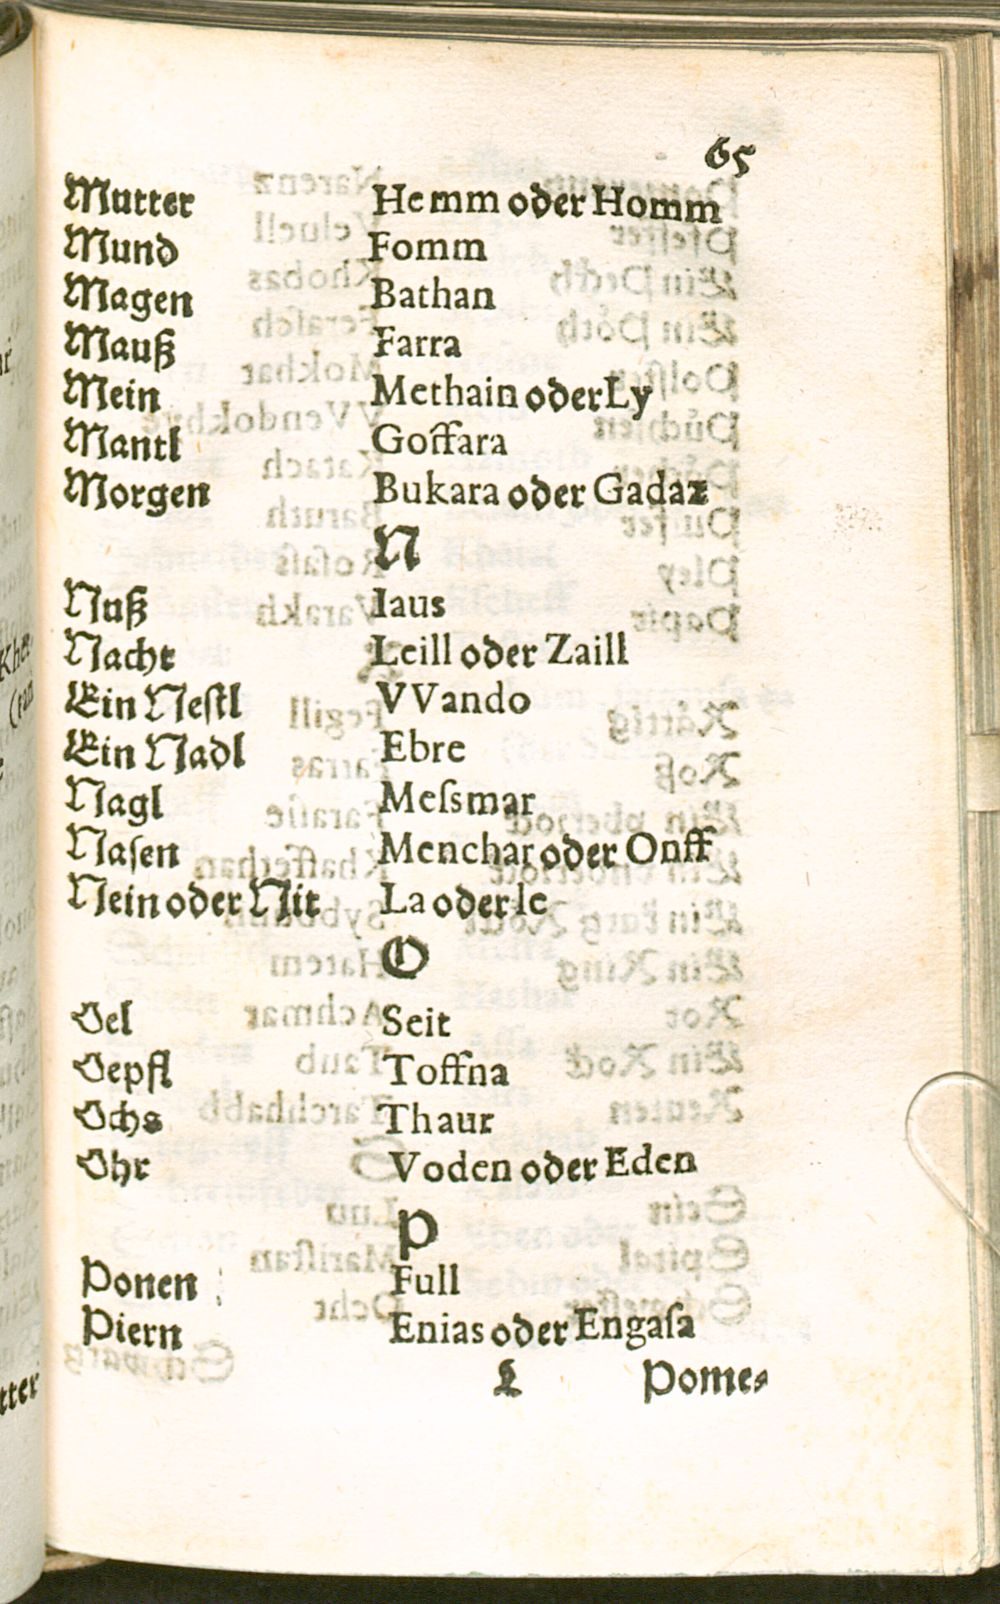 65
Mutter Hemm oder Homm
Mund Fomm
Magen Bathan
Mauß Farra
Mein Methain oder Ly
Mantl Goffara
Morgen Bukara oder Gadaz
N
Nuß Iaus
Nacht Leill oder Zaill
Ein Neſtl VVando
Ein Nadl Ebre
Nagl Meſsmar
Naſen Menchar oder Onff
Nein oder Nit La oder le
O
Oel Seit
Oepfl Toffna
Ochs Thaur
Ohr Voden oder Eden
P
Ponen Full
Piern Enias oder Engaſa
L Pome⸗